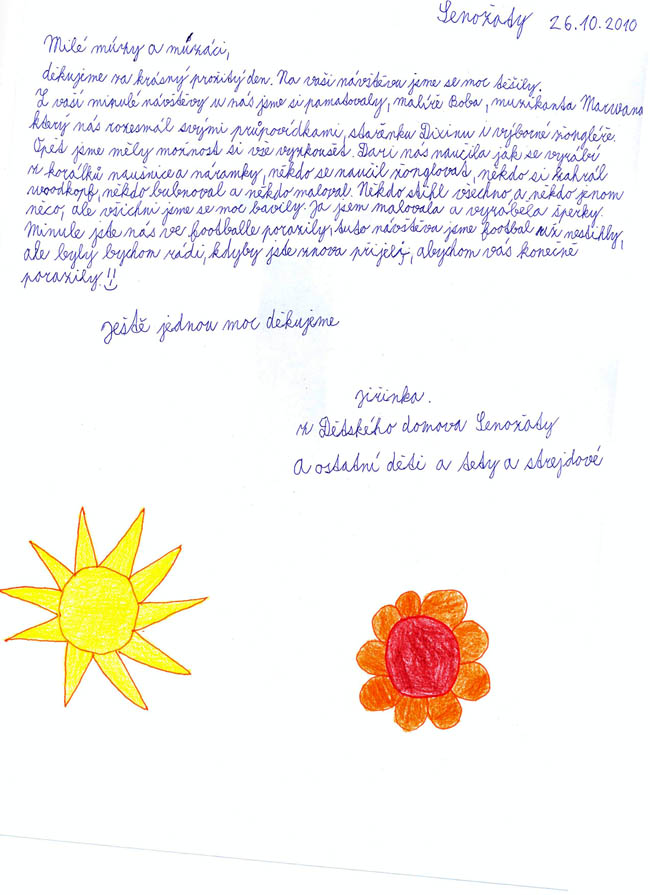 Senožaty 26.10.2010
Milé múzy a múzáci,
děkujeme za krásný prožitý den. Na vaši návštěvu jsme se moc těšily.
Z vaší minulé návštěvy u nás jsme si pamatovaly, malíře Boba, muzikanta Marwana
který nás rozesmál svými průpovídkami, stařenku Dixinu i výborné žongléře.
Opět jsme měly možnost si vše vyzkoušet. Dari nás naučila jak se vyrábí
z korálků naušnice a náramky, někdo se naučil žonglovat, někdo si zahrál
woodkopf, někdo bubenoval a někdo maloval. Někdo stihl všechno a někdo jenom
něco, ale všichni jsme se moc bavily. Ja jsem malovala a vyráběla šperky.
Minule jste nás ve footballe porazily, tuto návštěvu jsme footbal už nestihly,
ale byly bychom rádi, kdyby jste znova přijeli, abychom vás konečně
porazily!!
Ještě jednou moc děkujeme
Jiřinka.
z Dětského domova Senožaty
a ostatní děti a tety a strejdové